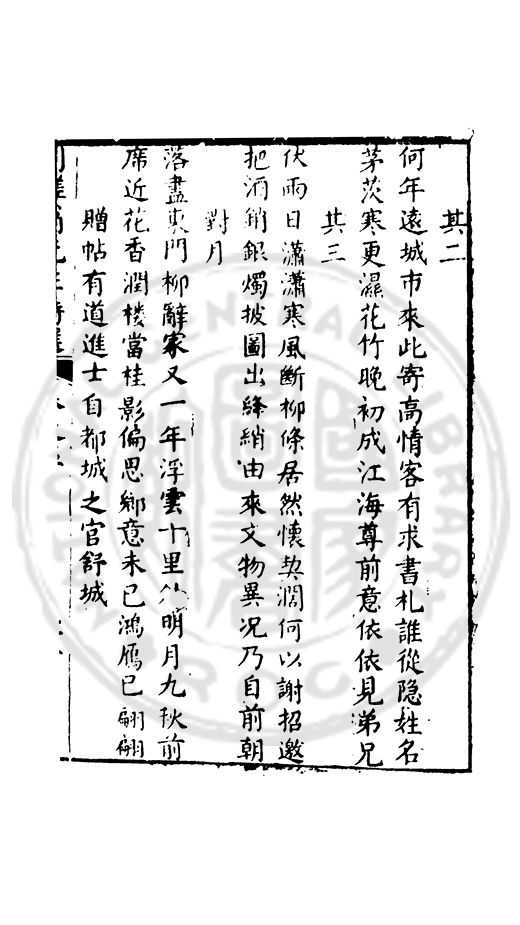 其二
何年遠城市來此寄高情客有求書札誰從隐姓名
茅茨寒更濕花竹晚初成江海尊前意依依見弟兄
其三
伏雨日瀟瀟寒風斷柳條居然懷契濶何以謝招邀
把酒銷銀燭披圖出絳綃由來文物異况乃自前朝
對月
落盡東門柳辭家又一年浮雲十里外明月九秋前
席近花香潤樓當桂影偏思鄉意未已鴻鴈已翩翩
贈帖有道進士自都城之官舒城